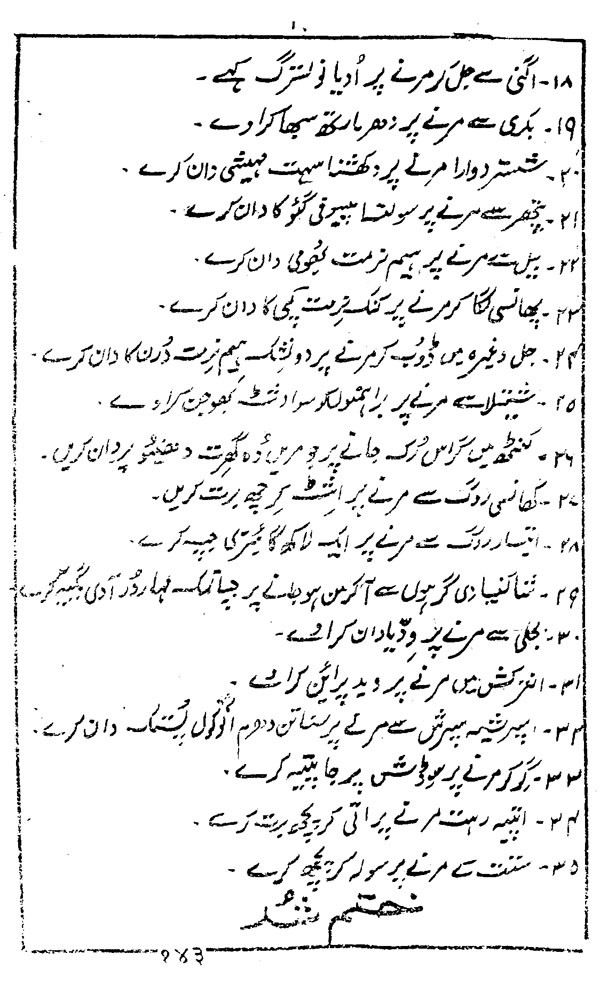 ۱۸- اگنی سے جل کر مرنے پر اُدیا نو لسترگ کہے -
۱۹- بکری سے مرنے پر دھر مارتھ سبھا کرا دے -
۲۰- شستر دوارا مرنے پر دکھشنا سہت مہیشی دان کرے -
۲۱- پتھر سے مرنے پر سولتسا پیسوفی گئو کا دان کرے -
۲۲- بیل سے مرنے پر ہیم نرمت بھومی دان کرے -
۲۳- پھانسی لگا کر مرنے پر کنک نرمت کپی کا دان کرے -
۲۴- جل وغیرہ میں ڈوب کر مرنے پر دو نشک ہیم نرمت ورن کا دان کرے -
۲۵- شیتلا سے مرنے پر براہمنوں کو سوادشٹ بھوجن کراوے -
۲۶- کنٹھ میں گراس رُک جانے پر جو مریں وہ گھرت دھینو پر دان کریں -
۲۷- کھانسی روگ سے مرنے پر اشٹ کرچھ برت کریں -
۲۸- اتیسار روگ سے مرنے پر ایک لاکھ گائیتری جپ کرے -
۲۹- شاکنیادی گرہوں سے آکرمن ہو جانے پر جپاتمک مہاردر آدی یگیہ کرے -
۳۰- بجلی سے مرنے پر ودّیا دان کراوے -
۳۱- انترکش میں مرنے پر وید پرائن کراوے -
۳۲- اسپرشیہ سپرش سے مرنے پر سناتن دھرم انوکول پستک دان کرے -
۳۳- گر کر مرنے پر شوڈش پرجاپتیہ کرے -
۳۴- اپتیہ رہت مرنے پر اتی کرچھ برت کرے -
۳۵- ستت سے مرنے پر سولہ کرچھ کرے -
ختم شد